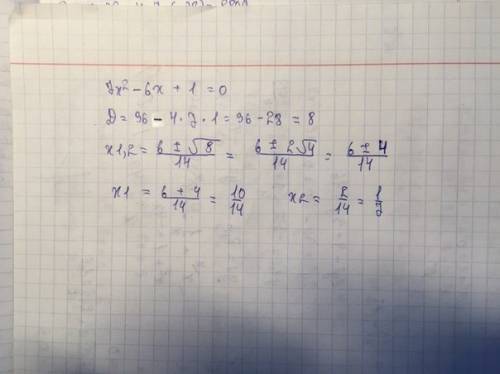 7x² - 6x + 1 = 0
D = 36 - 4 · 7 · 1 = 36 - 28 = 8
x1,2 = (6 ± √8)/14 = (6 ± 2√4)/14 = (6 ± 4)/14
x1 = (6 + 4)/14 = 10/14 x2 = 2/14 = 1/7